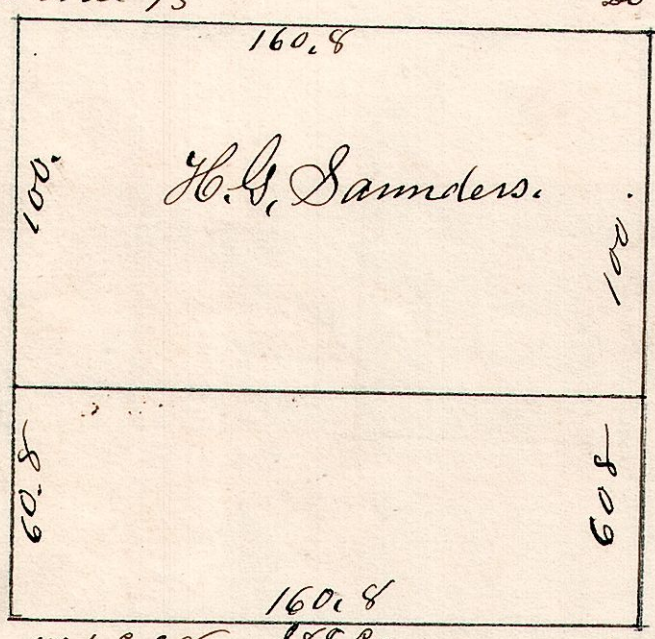 160.8
H. G. Saunders.
100.
100.
60.8
608
160.8